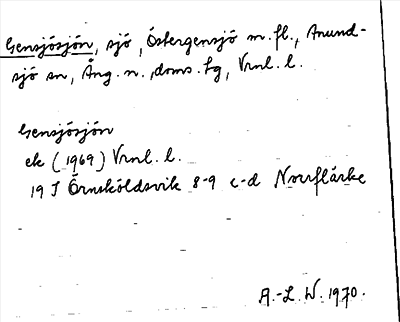 Gensjösjön, sjö, Östergensjö m.fl., Anund-
sjö sn, Ång. n. doms. tg, Vrnl. l.
Gensjösjön
ek (1969) Vrnl. l.
19 J Örnsköldsvik 8-9 c-d Norrflärke
A.-L. W. 1970.